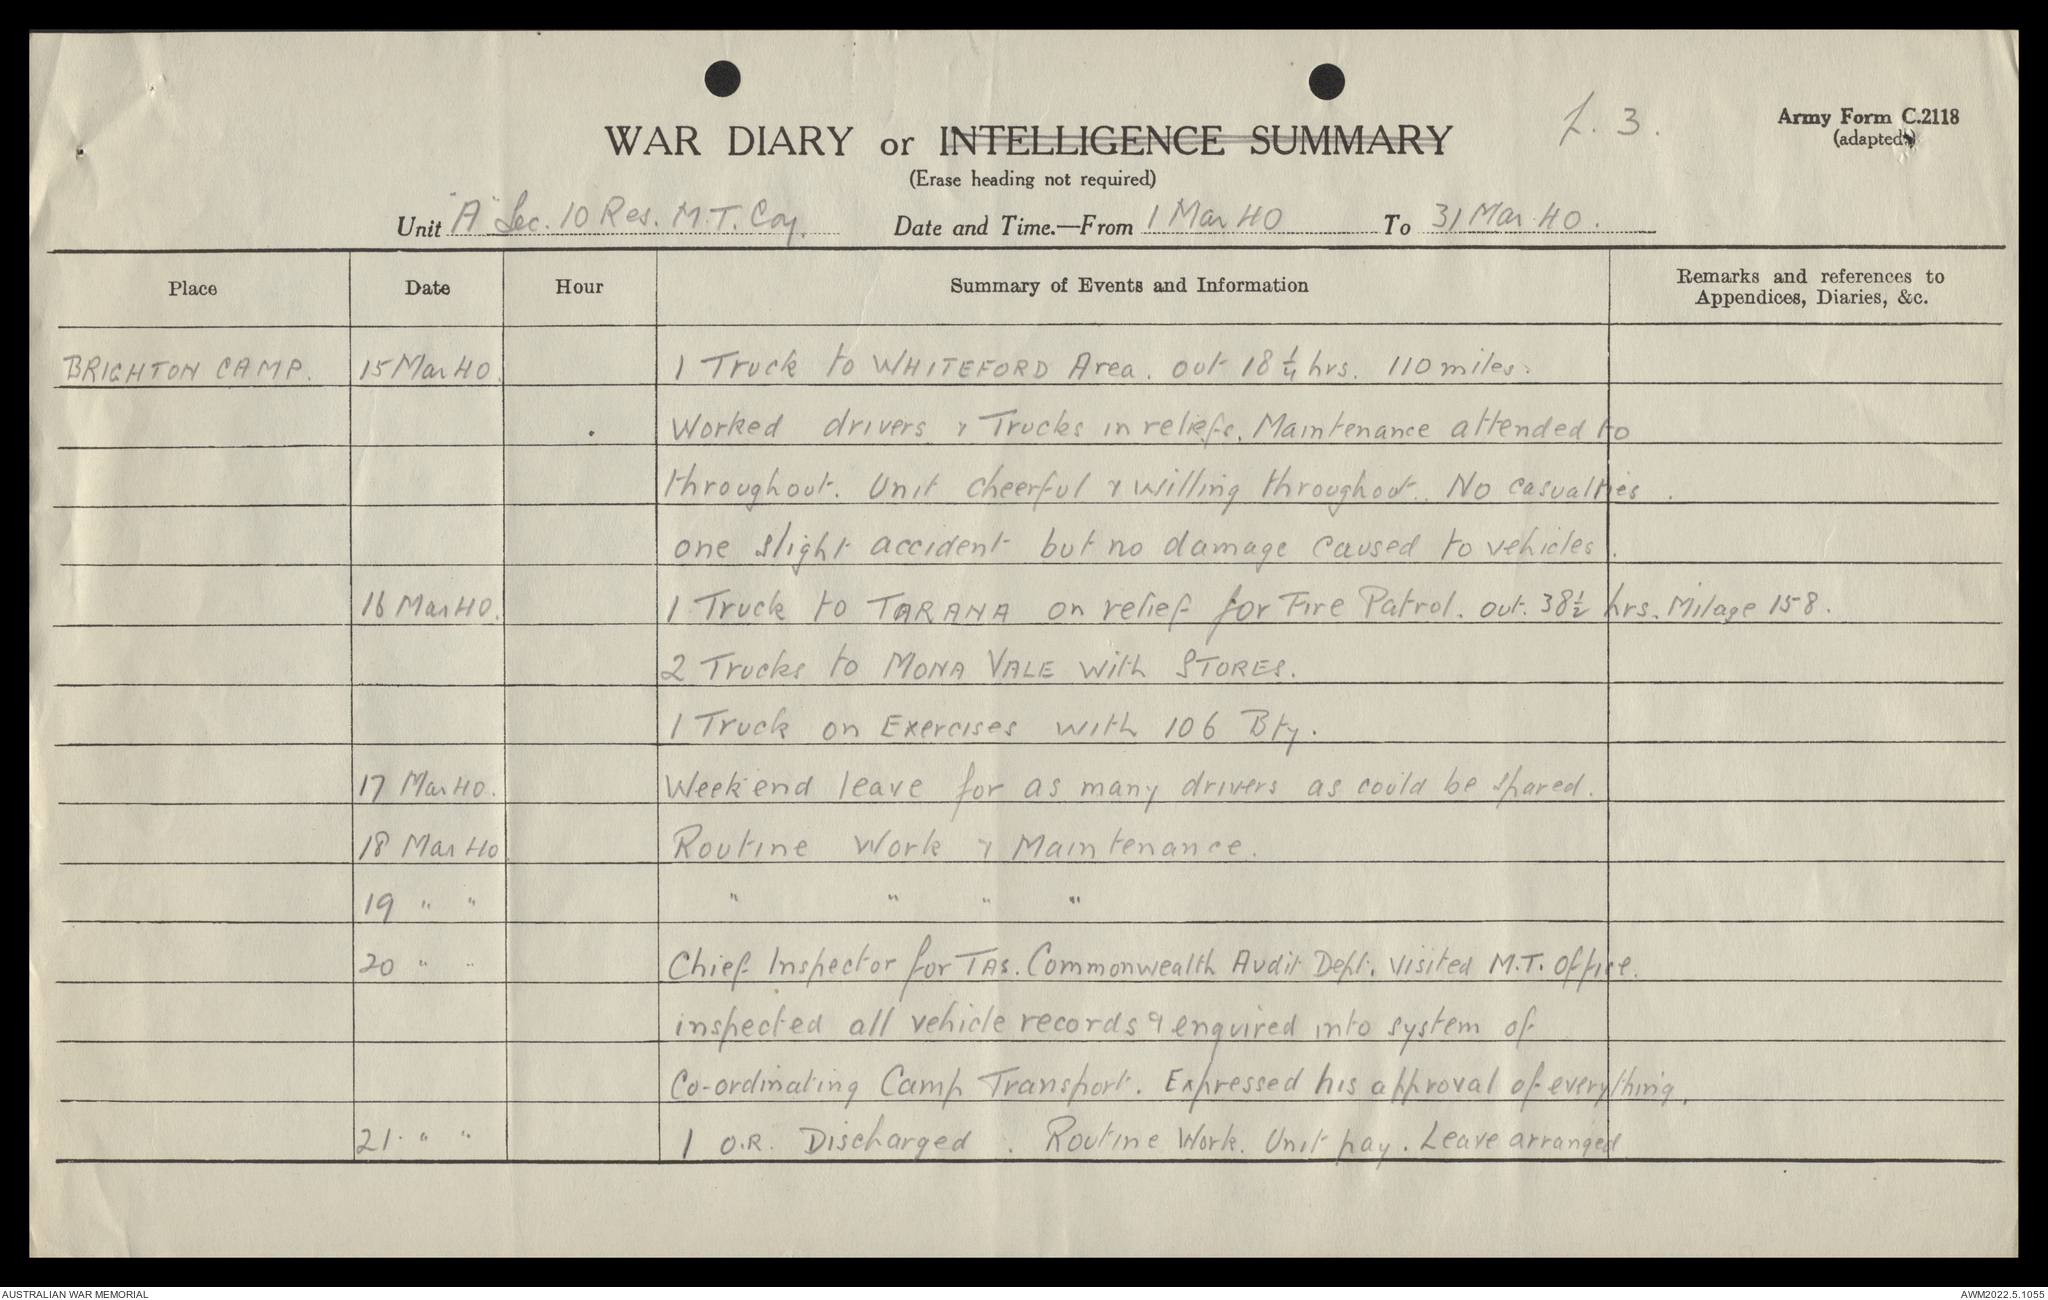 f. 3.
Army Form C.2118
(adapted)
WAR DIARY or INTELLIGENCE SUMMARY
(Erase heading not required)
Unit "A" Sec. 10 Res. M.T. Coy. Date and Time.—From 1 Mar 40 To 31 Mar 40.
Place Date Hour Summary of Events and Information Remarks and references to
Appendices, Diaries, &c.
BRIGHTON CAMP. 15 Mar 40 1 Truck to WHITEFORD Area. out 18 1/4 hrs. 110 miles.
Worked drivers & Trucks in reliefs. Maintenance attended to
throughout. Unit cheerful & willing throughout. No casualties.
one slight accident but no damage caused to vehicles.
16 Mar 40. 1 Truck to TARANA on relief for Fire Patrol. out. 38 1/2 hrs. Milage 158.
2 Trucks to MONA VALE with STORES.
1 Truck on Exercises with 106 Bty.
17 Mar 40. Weekend leave for as many drivers as could be spared.
18 Mar 40 Routine Work & Maintenance.
19 " " " " " "
20 " " Chief Inspector for TAS. Commonwealth Audit Dept. visited M.T. office.
inspected all vehicle records & enquired into system of
Co-ordinating Camp Transport. Expressed his approval of everything.
21 " " 1 O.R. Discharged. Routine Work. Unit pay. Leave arranged
AUSTRALIAN WAR MEMORIAL
AWM2022.5.1055